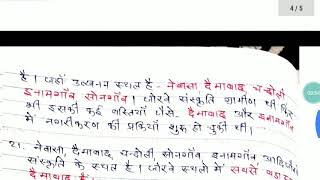 4 / 5
है। यहाँ उत्खनन स्थल है - नेवासा दैमाबाद चन्दोली
इनामगाँव सोनगाँव। जोरवे संस्कृति ग्रामीण थी फिर
भी इसकी कई बस्तियाँ जैसे दैमाबाद और इनामगाँव
में नगरीकरण की प्रक्रिया शुरू हो चुकी थी।
21. नेवासा, दैमाबाद चन्दोली सोनगाँव, इनामगाँव आदि
संस्कृति के स्थल है। जोरवे स्थलों में सबसे बड़ा
दैमाबाद है।